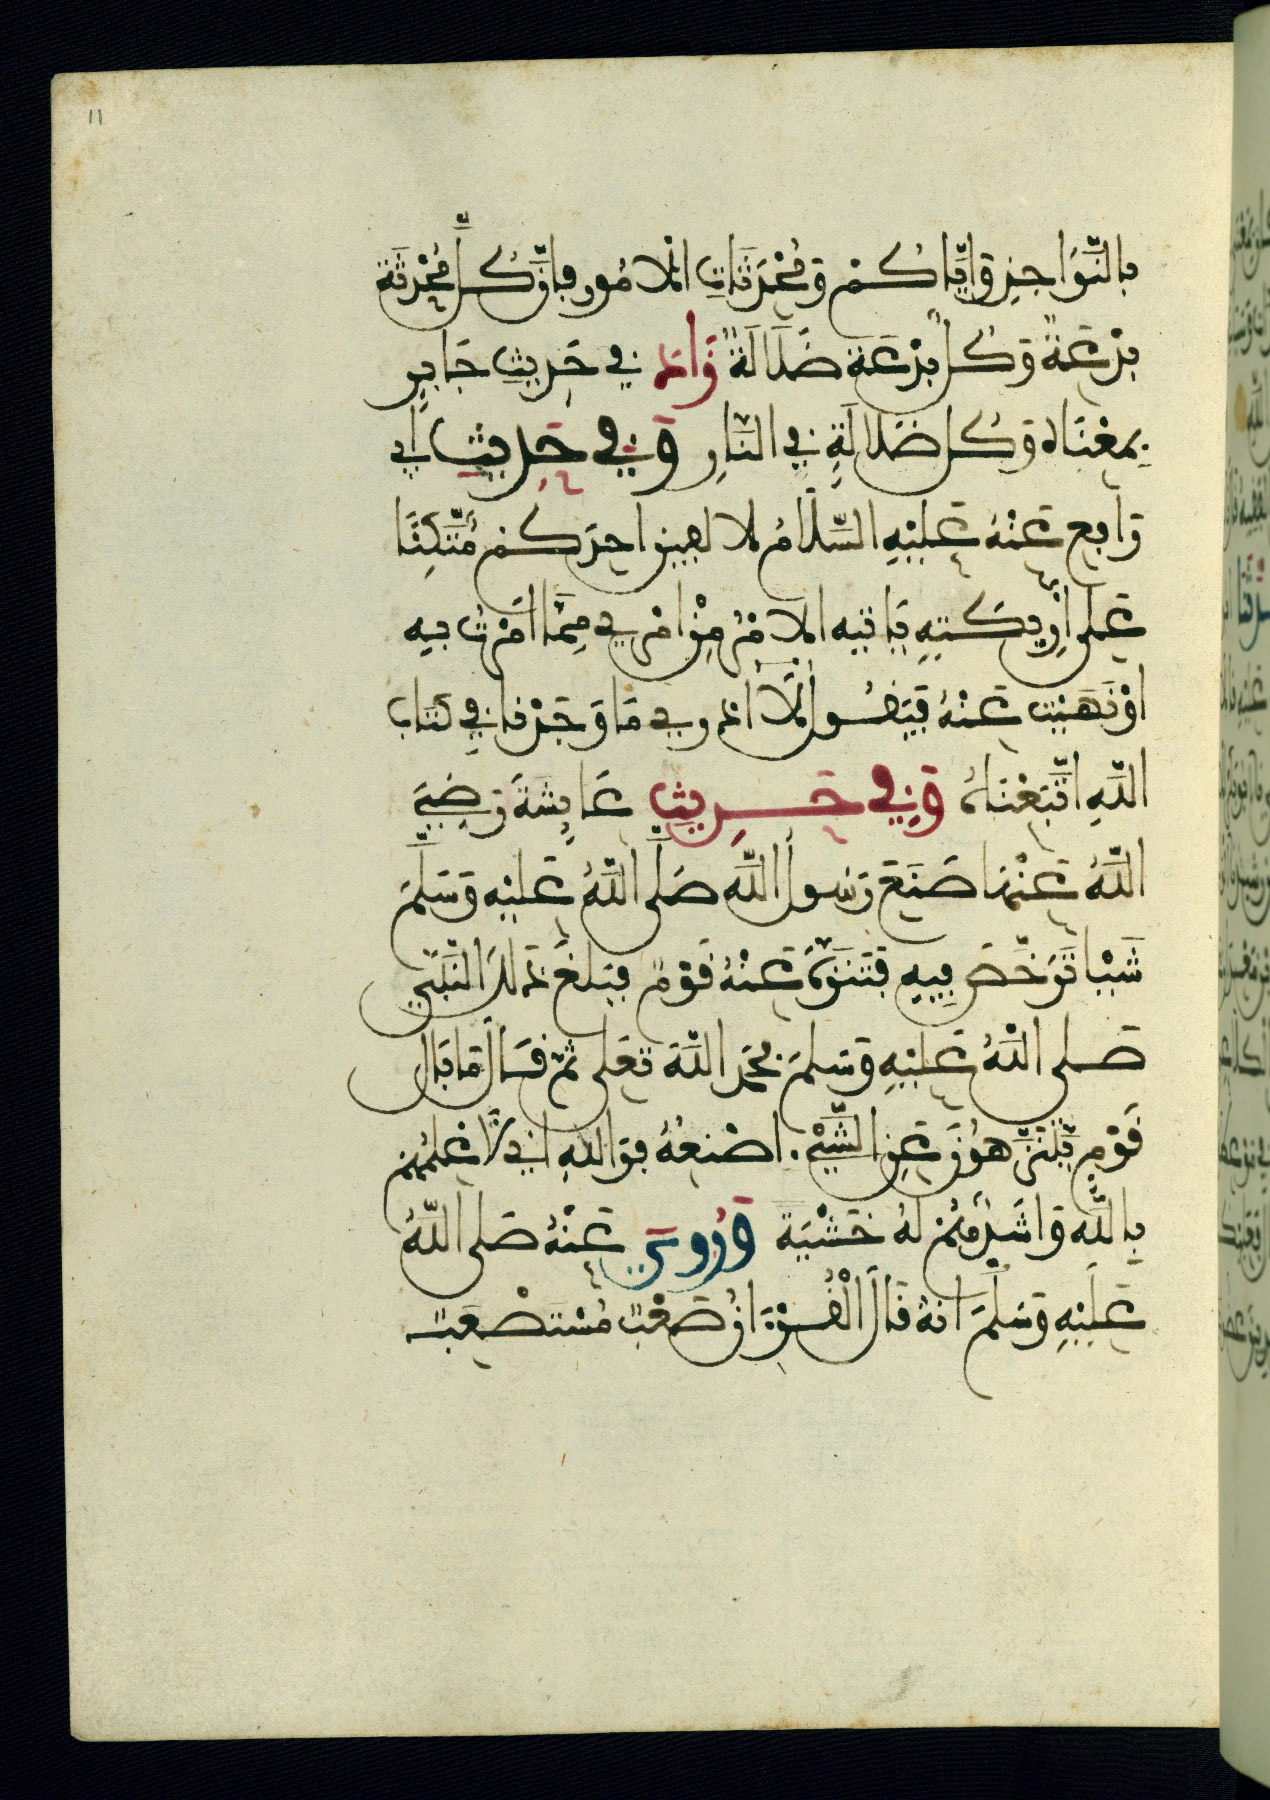 11
بالنَّوَاجِذِ وَإِيَّاكُمْ وَمُحْدَثَاتِ الْأُمُورِ فَإِنَّ كُلَّ مُحْدَثَةٍ
بِدْعَةٌ وَكُلُّ بِدْعَةٍ ضَلَالَةٌ زَادَ فِي حَدِيثِ جَابِرٍ
بِمَعْنَاهُ وَكُلُّ ضَلَالَةٍ فِي النَّارِ وَفِي حَدِيثِ أَبِي
رَافِعٍ عَنْهُ عَلَيْهِ السَّلَامُ لَا أُلْفِيَنَّ أَحَدَكُمْ مُتَّكِئًا
عَلَى أَرِيكَتِهِ يَاتِيهِ الْأَمْرُ مِنْ أَمْرِي مِمَّا أَمَرْتُ بِهِ
أَوْ نَهَيْتُ عَنْهُ فَيَقُولُ لَا أَدْرِي مَا وَجَدْنَا فِي كِتَابِ
اللَّهِ اتَّبَعْنَاهُ وَفِي حَدِيثِ عَايِشَةَ رَضِيَ
اللَّهُ عَنْهَا صَنَعَ رَسُولُ اللَّهِ صَلَّى اللَّهُ عَلَيْهِ وَسَلَّمَ
شَيْئًا تَرَخَّصَ فِيهِ فَتَنَزَّهَ عَنْهُ قَوْمٌ فَبَلَغَ ذَلِكَ النَّبِيَّ
صَلَّى اللَّهُ عَلَيْهِ وَسَلَّمَ فَحَمِدَ اللَّهَ تَعَلَى ثُمَّ قَالَ مَا بَالُ
قَوْمٍ يَتَنَزَّهُونَ عَنِ الشَّيْءِ أَصْنَعُهُ فَوَاللَّهِ إِنِّي لَأَعْلَمُهُمْ
بِاللَّهِ وَأَشَدُّهُمْ لَهُ خَشْيَةً وَرُوِيَ عَنْهُ صَلَّى اللَّهُ
عَلَيْهِ وَسَلَّمَ أَنَّهُ قَالَ الْقُرْءَانُ صَعْبٌ مُسْتَصْعَبٌ